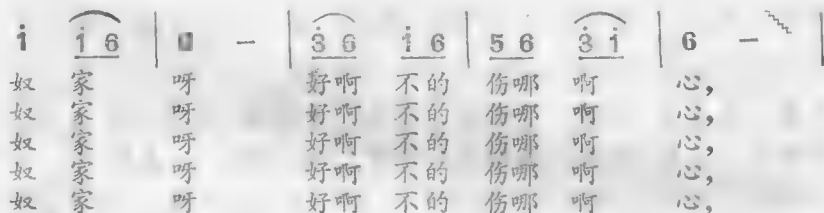 i i 6 | - | 3 6 i 6 | 5 6 3 i | 6 - |
奴 家 呀 好啊 不的 伤哪 啊 心,
奴 家 呀 好啊 不的 伤哪 啊 心,
奴 家 呀 好啊 不的 伤哪 啊 心,
奴 家 呀 好啊 不的 伤哪 啊 心,
奴 家 呀 好啊 不的 伤哪 啊 心,